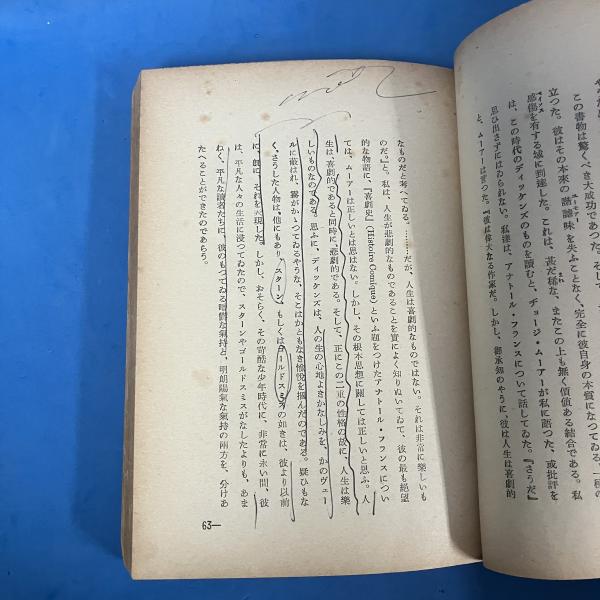 やうだと
この書物は驚くべき大成功であつた。そして
立つた。彼はその本來の諧謔味を失ふことなく、完全に彼自身の本質に
感傷を有する城に到達した。これは、甚だ稀な、またこの上も無く價値ある結合である。私
は、この時代のディッケンズのものを讀むと、ヂョージ・ムーアーが私に語つた、或批評を
思ひ出さずにはゐられない。私達は、アナトール・フランスについて話してゐた。『さうだ』
と、ムーアーは言つた。『彼は偉大なる作家だ。しかし、御承知のやうに、彼は人生は喜劇的
なものだと考へてゐる。……だが、人生は喜劇的なものではない。それは非常に樂しいも
のだ。』と。私は、人生が悲劇的なものであることを實によく知りぬいてゐて、彼の最も絶望
的な物語に、『喜劇史』(Histoire Comique)といふ題をつけたアナトール・フランスについ
ては、ムーアーは正しいとは思はない。しかし、その根本思想に關しては正しいと思ふ。人
生は、喜劇的であると同時に、悲劇的である。そして、正にこの二重の性格の故に、人生は樂
しいものなのである。思ふに、ディッケンズは、人の生の心地よきかなしみを、かのヴェー
ルに蔽はれ、霧がかゝつてゐるやうな、そこはかともなき愉悅を摑んだのである。疑ひもな
く、さうした人物は、他にもあり、スターン、もしくはゴールドスミスの如きは、彼より以前
に、既に、それを表現した。しかし、おそらく、その苛酷な少年時代に、非常に永い間、彼
は、平凡な人々の生活に浸つてゐたので、スターンやゴールドスミスがなしたよりも、あま
ねく、平凡な讀者たちに、彼のもつてゐる暗鬱な氣持と、明朗陽氣な氣持の兩方を、分けあ
たへることができたのであらう。
63—